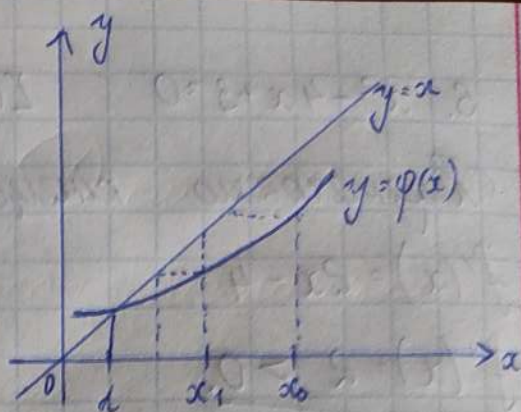 y
y=x
y=φ(x)
0
α
x₁
x₀
x